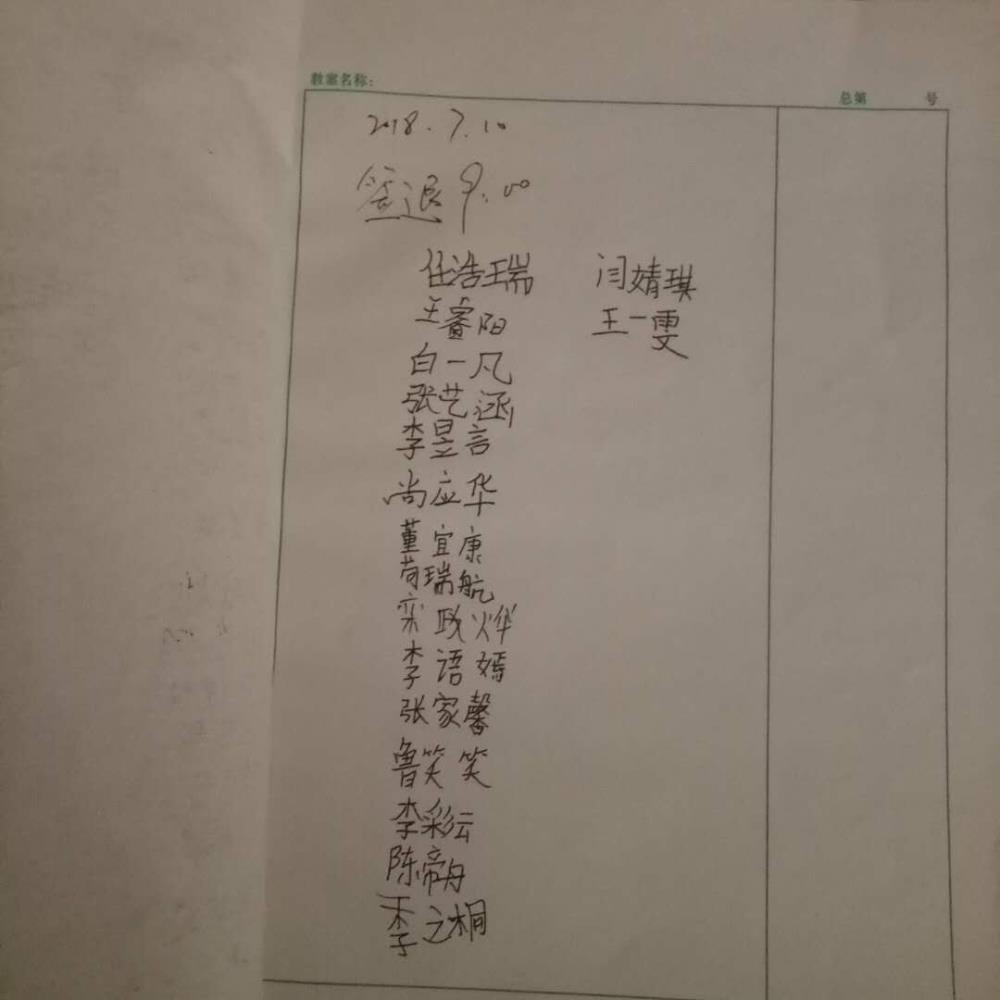 教案名称：
总第 号
2018.7.10
签退 9:00
任浩瑞 闫婧琪
王睿阳 王一雯
白一凡
张艺涵
李昱言
尚应华
董宜康
苟瑞航
栾政烨
李语嫣
张家馨
鲁笑笑
李彩云
陈帝舟
李之桐